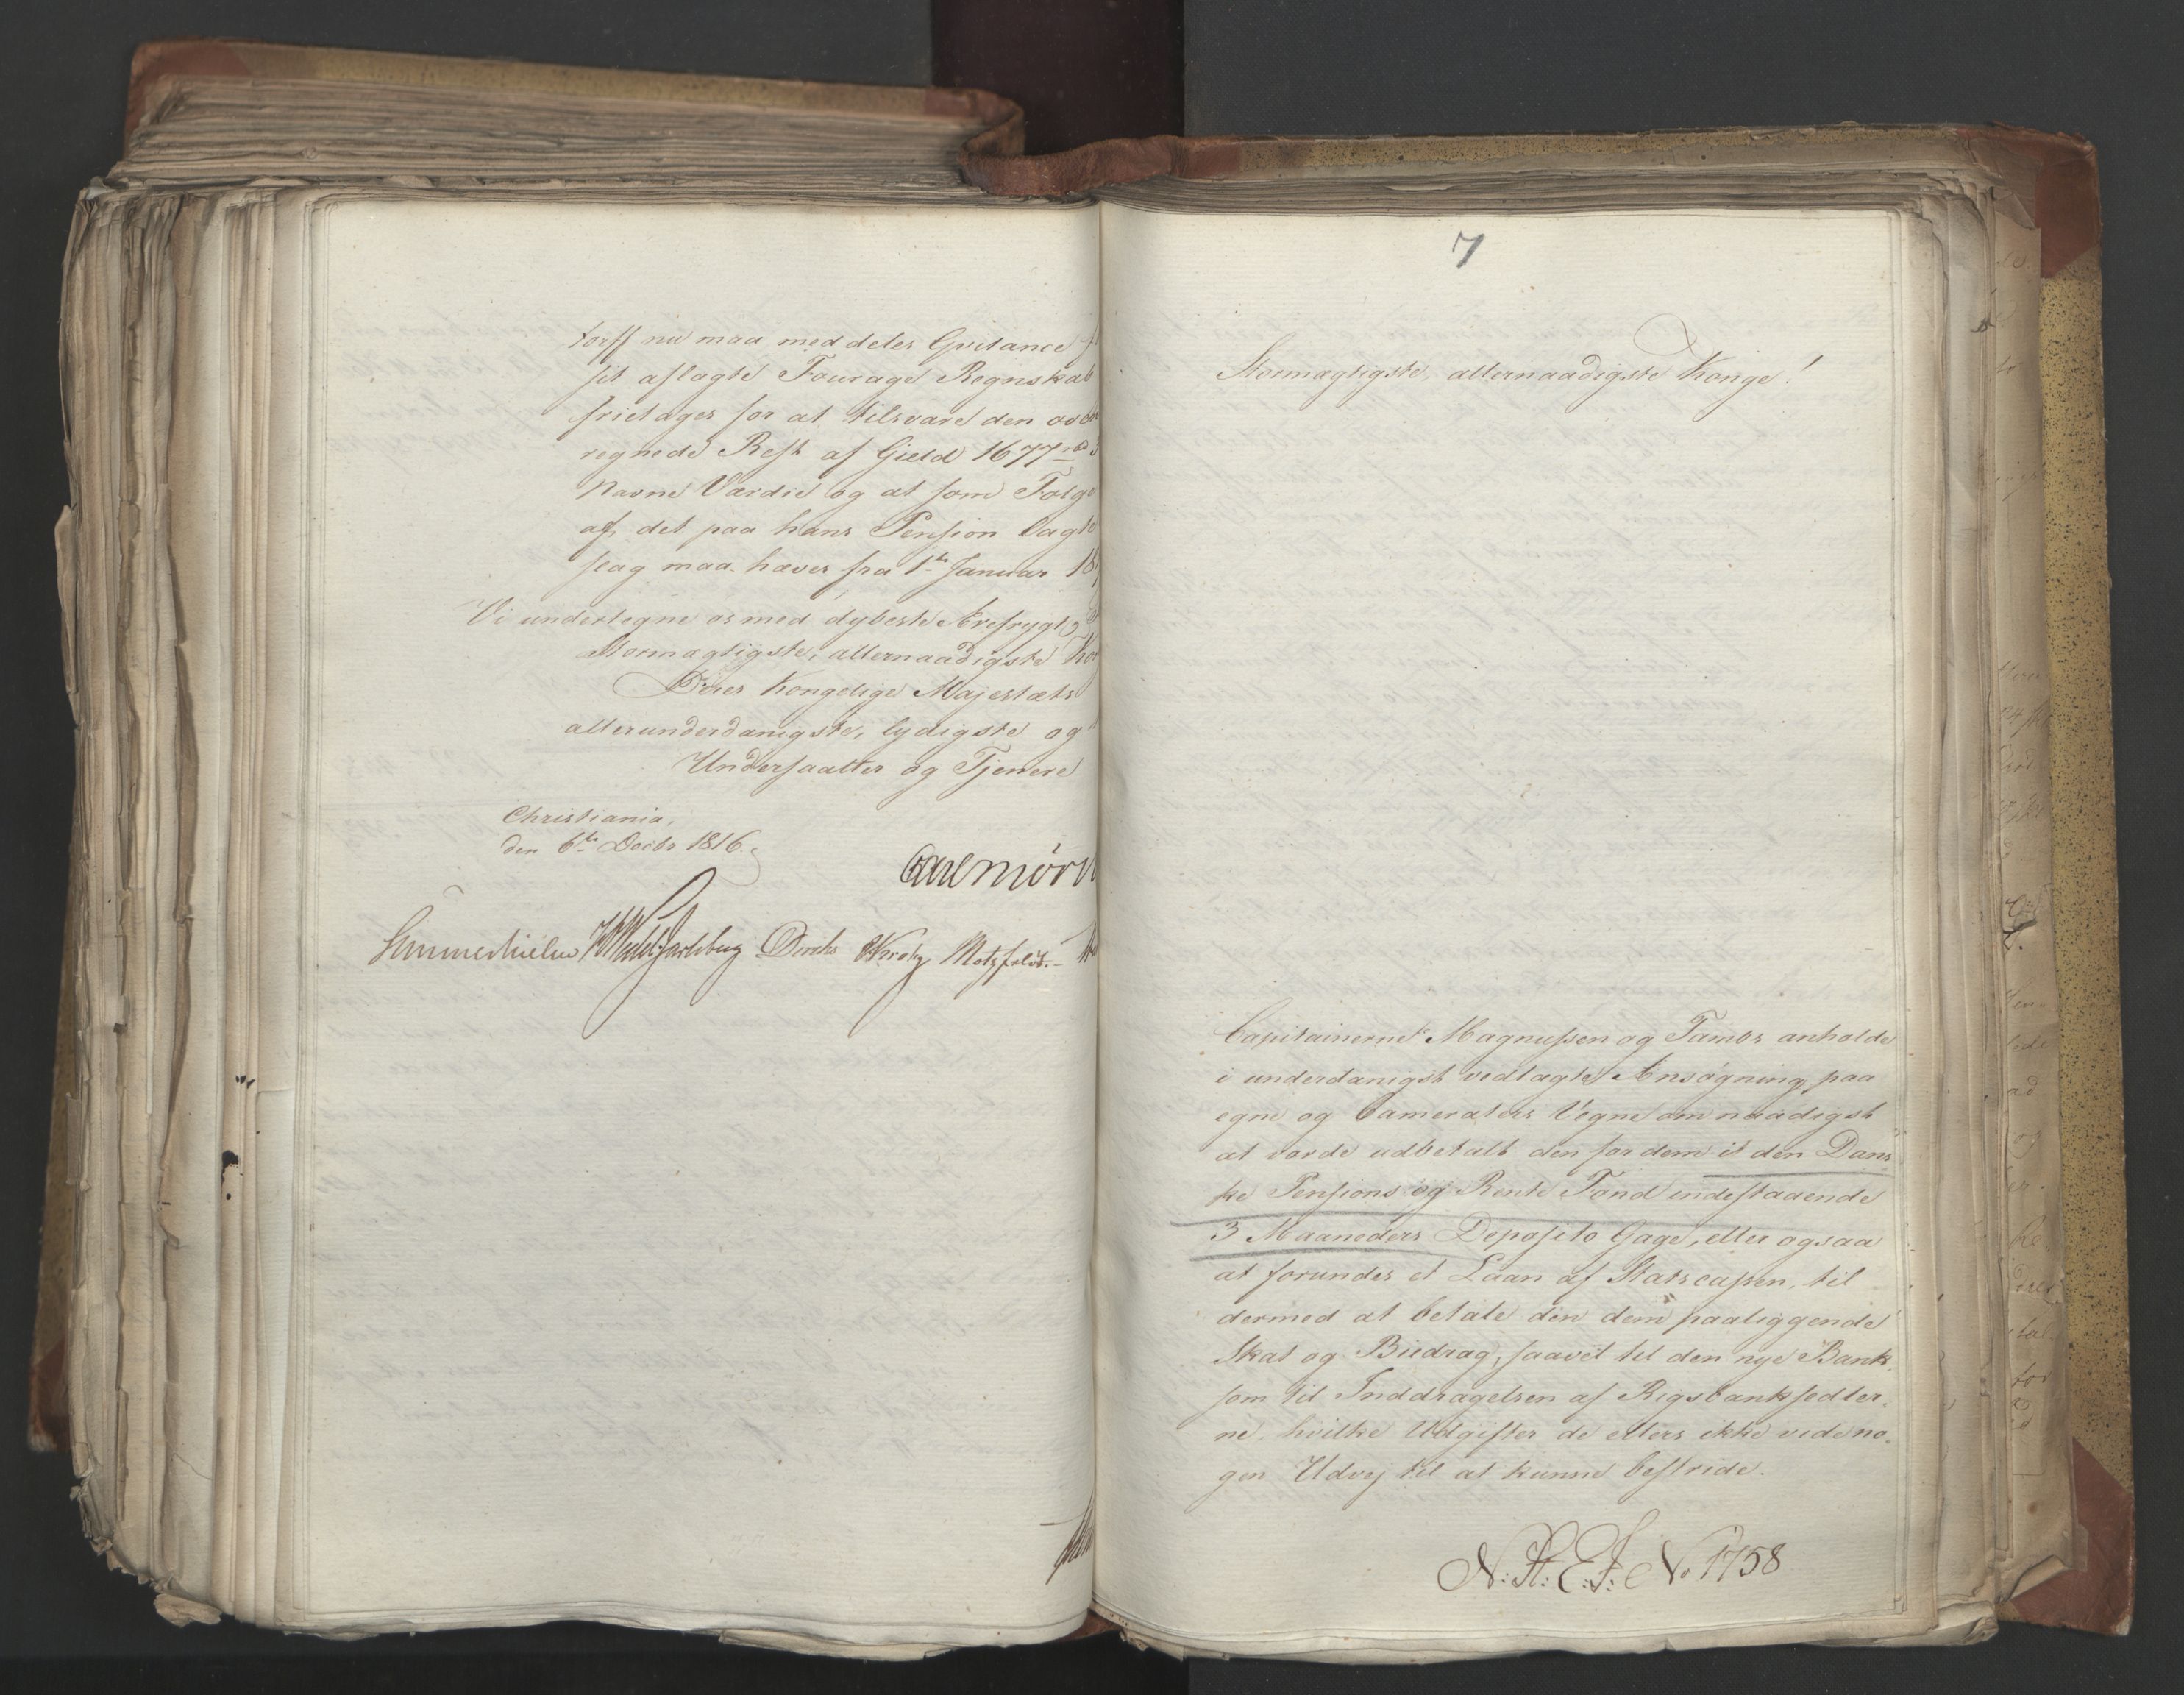 torff nu maa meddeles Qvitance
sit aflagte Fourage Regnskab
frietages for at tilsvare den
regnede Rest af Gield 1677
Navne Værdie og at som Følge
af det paa hans Pension lagte
slag maa hæves fra 1te Januar 18
Vi undertegne os med dybeste Ærefrygt
Stormægtigste, allernaadigste Kon
Deres Kongelige Majestæts
allerunderdanigste, lydigste og
Undersaatter og Tjenere
Christiania,
den 6te Decbr 1816.
Carl Mörn
Sommerhielm HWedelJarlsberg Diriks CKrohg Motzfeldt.
7
Stormægtigste, allernaadigste Konge!
Capitainerne Magnussen og Tambs anholde
i underdanigst vedlagte Ansøgning paa
egne og Cameraters Vegne om naadigst
at vorde udbetalt den for dem i den Dans
ke Pensions og Rente Fond indestaaende
3 Maaneders Deposito Gage, eller ogsaa
at forundes et Laan af Statscassen, til
dermed at betale den dem paaliggende
Skat og Biedrag, saavel til den nye Bank
som til Inddragelsen af Rigsbanksedler-
ne, hvilke Udgifter de ellers ikke vide no-
gen Udvej til at kunne bestride.
N: St: E: J: No 1758